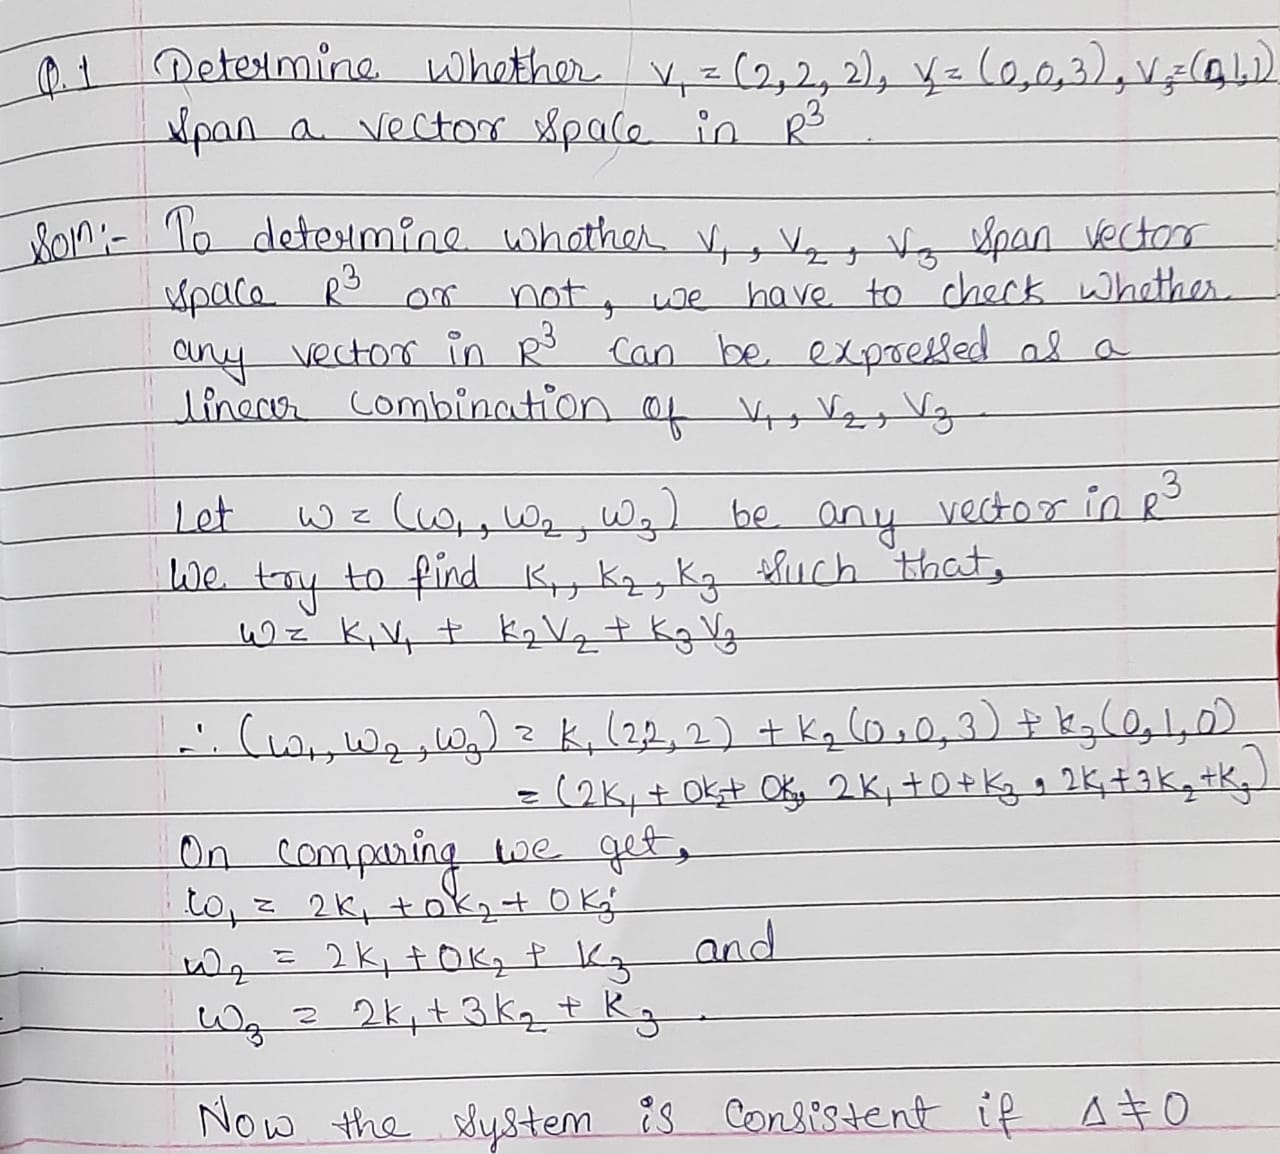 Q.1 Determine whether v₁ = (2, 2, 2), v₂ = (0, 0, 3), v₃ = (0, 1, 1)
span a vector space in R³.
Soln:- To determine whether v₁, v₂, v₃ span vector
space R³ or not, we have to check whether
any vector in R³ can be expressed as a
linear combination of v₁, v₂, v₃
Let w = (w₁, w₂, w₃) be any vector in R³
We try to find K₁, K₂, K₃ such that,
w = K₁V₁ + K₂V₂ + K₃V₃
∴ (w₁, w₂, w₃) = K₁(2,2, 2) + K₂(0, 0, 3) + K₃(0, 1, 0)
= (2K₁ + 0K₂ + 0K₃, 2K₁ + 0 + K₃, 2K₁ + 3K₂ + K₃)
On comparing we get,
w₁ = 2K₁ + 0K₂ + 0K₃
w₂ = 2K₁ + 0K₂ + K₃ and
w₃ = 2K₁ + 3K₂ + K₃.
Now the system is Consistent if Δ ≠ 0